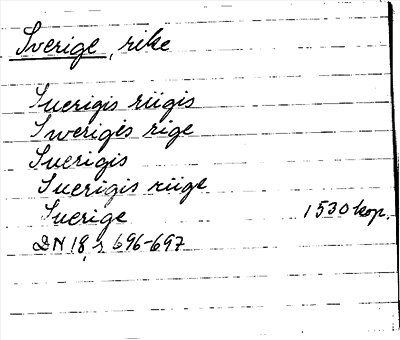 Sverige, rike
Suerigis riigis
Sweriges rige
Suerigis
Suerigis riige
Suerige 1530 kop.
DN 18, s 696-697